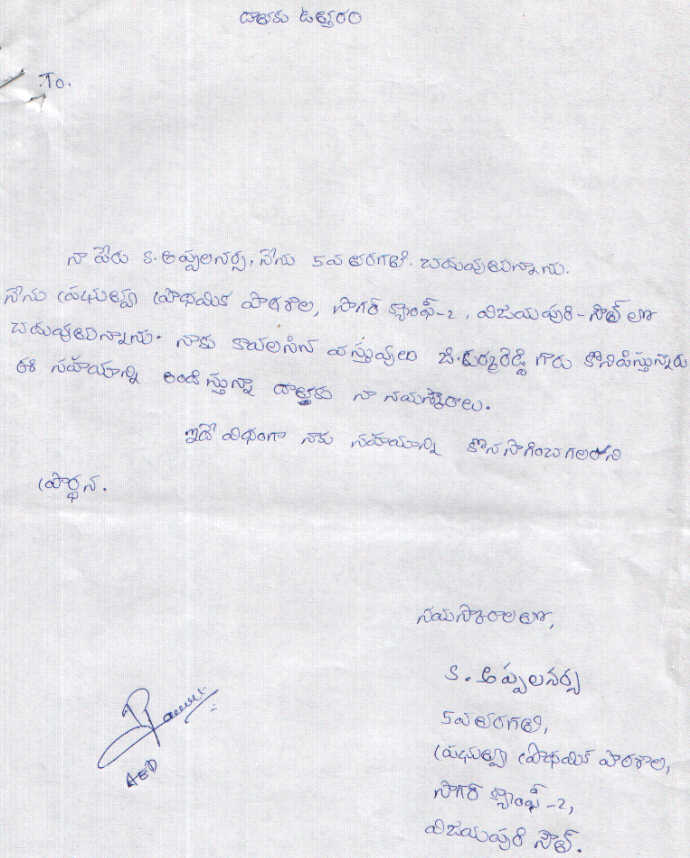 దాతకు ఉత్తరం
To.
నా పేరు కె. అప్పలనర్స, నేను 5వ తరగతి. చదువుతున్నాను.
నేను ప్రభుత్వ ప్రాథమిక పాఠశాల, సాగర్ క్యాంప్-2, విజయపురి-సౌత్ లో
చదువుతున్నాను. నాకు కావలసిన వస్తువులు జి. ధర్మారెడ్డి గారు కొనిపిస్తున్నారు
ఈ సహాయాన్ని అందిస్తున్నా దాతకు నా నమస్కారాలు.
ఇదే విధంగా నాకు సహాయాన్ని కొనసాగించగలరని
ప్రార్థన.
నమస్కారాలతో,
కె. అప్పలనర్స
5వ తరగతి,
ప్రభుత్వ ప్రాథమిక పాఠశాల,
సాగర్ క్యాంప్-2,
విజయపురి సౌత్.
AEO